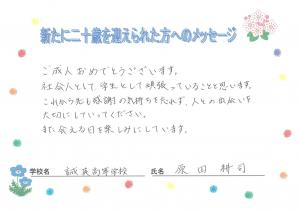 新たに二十歳を迎えられた方へのメッセージ
ご成人おめでとうございます。
社会人として、学生として頑張っていることと思います。
これから先も感謝の気持ちを忘れず、人との出会いを
大切にしていってください。
また会える日を楽しみにしています。
学校名 誠英高等学校 氏名 原田 耕司